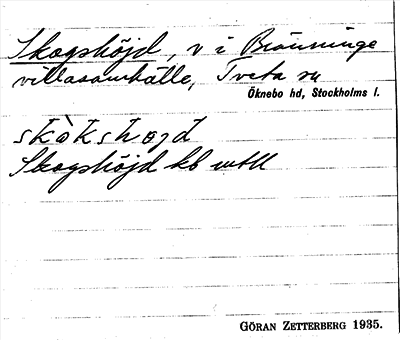 Skogshöjd, v i Bränninge
villasamhälle, Tveta sn
Öknebo hd, Stockholms l.
skòkshøjd
Skogshöjd kb
GÖRAN ZETTERBERG 1935.